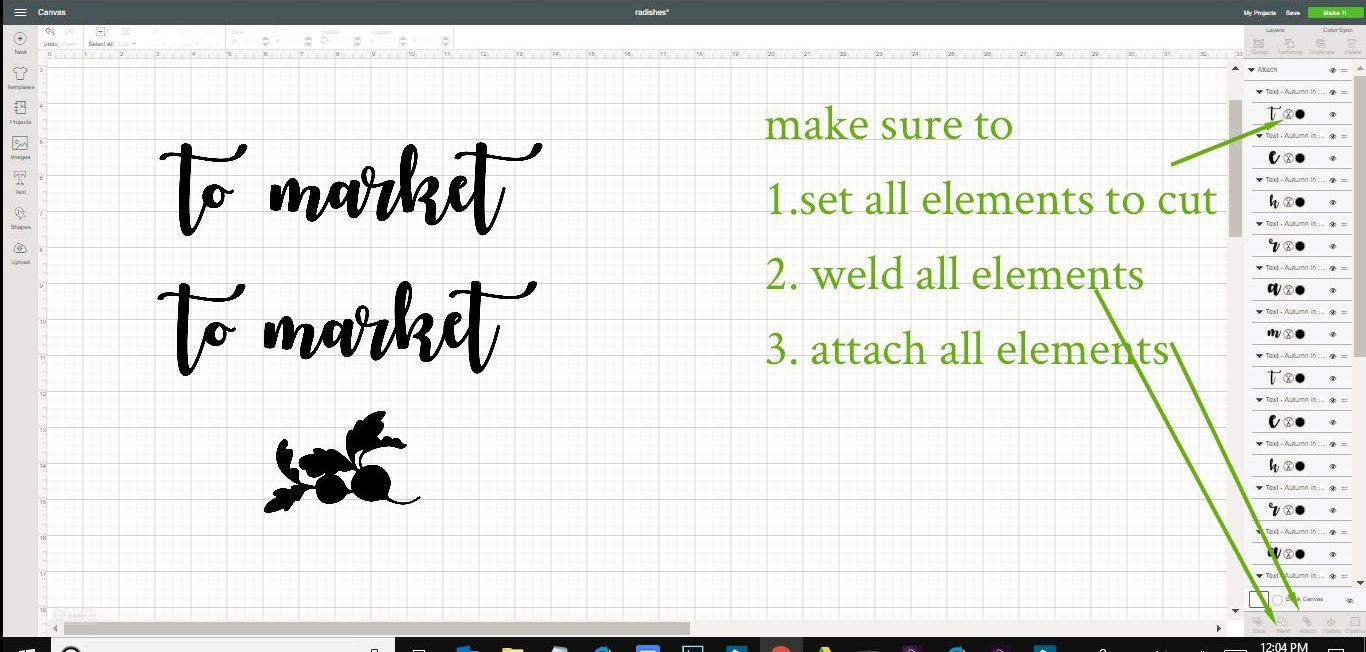 Canvas
radishes*
My Projects Save Make It
Undo Select All
New
Templates
Projects
Images
Text
Shapes
Upload
Layers Color Sync
Group UnGroup Duplicate Delete
Attach
Text - Autumn in ...
Text - Autumn in ...
Text - Autumn in ...
Text - Autumn in ...
Text - Autumn in ...
Text - Autumn in ...
Text - Autumn in ...
Text - Autumn in ...
Text - Autumn in ...
Text - Autumn in ...
Text - Autumn in ...
Text - Autumn in ...
to market
to market
make sure to
1.set all elements to cut
2. weld all elements
3. attach all elements
Canvas
Slice Weld Attach Flatten
12:04 PM